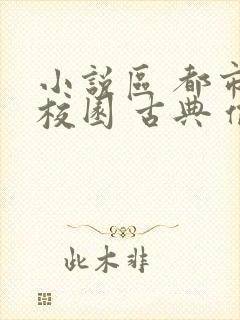 小説區 都市
校園 古典
此木非